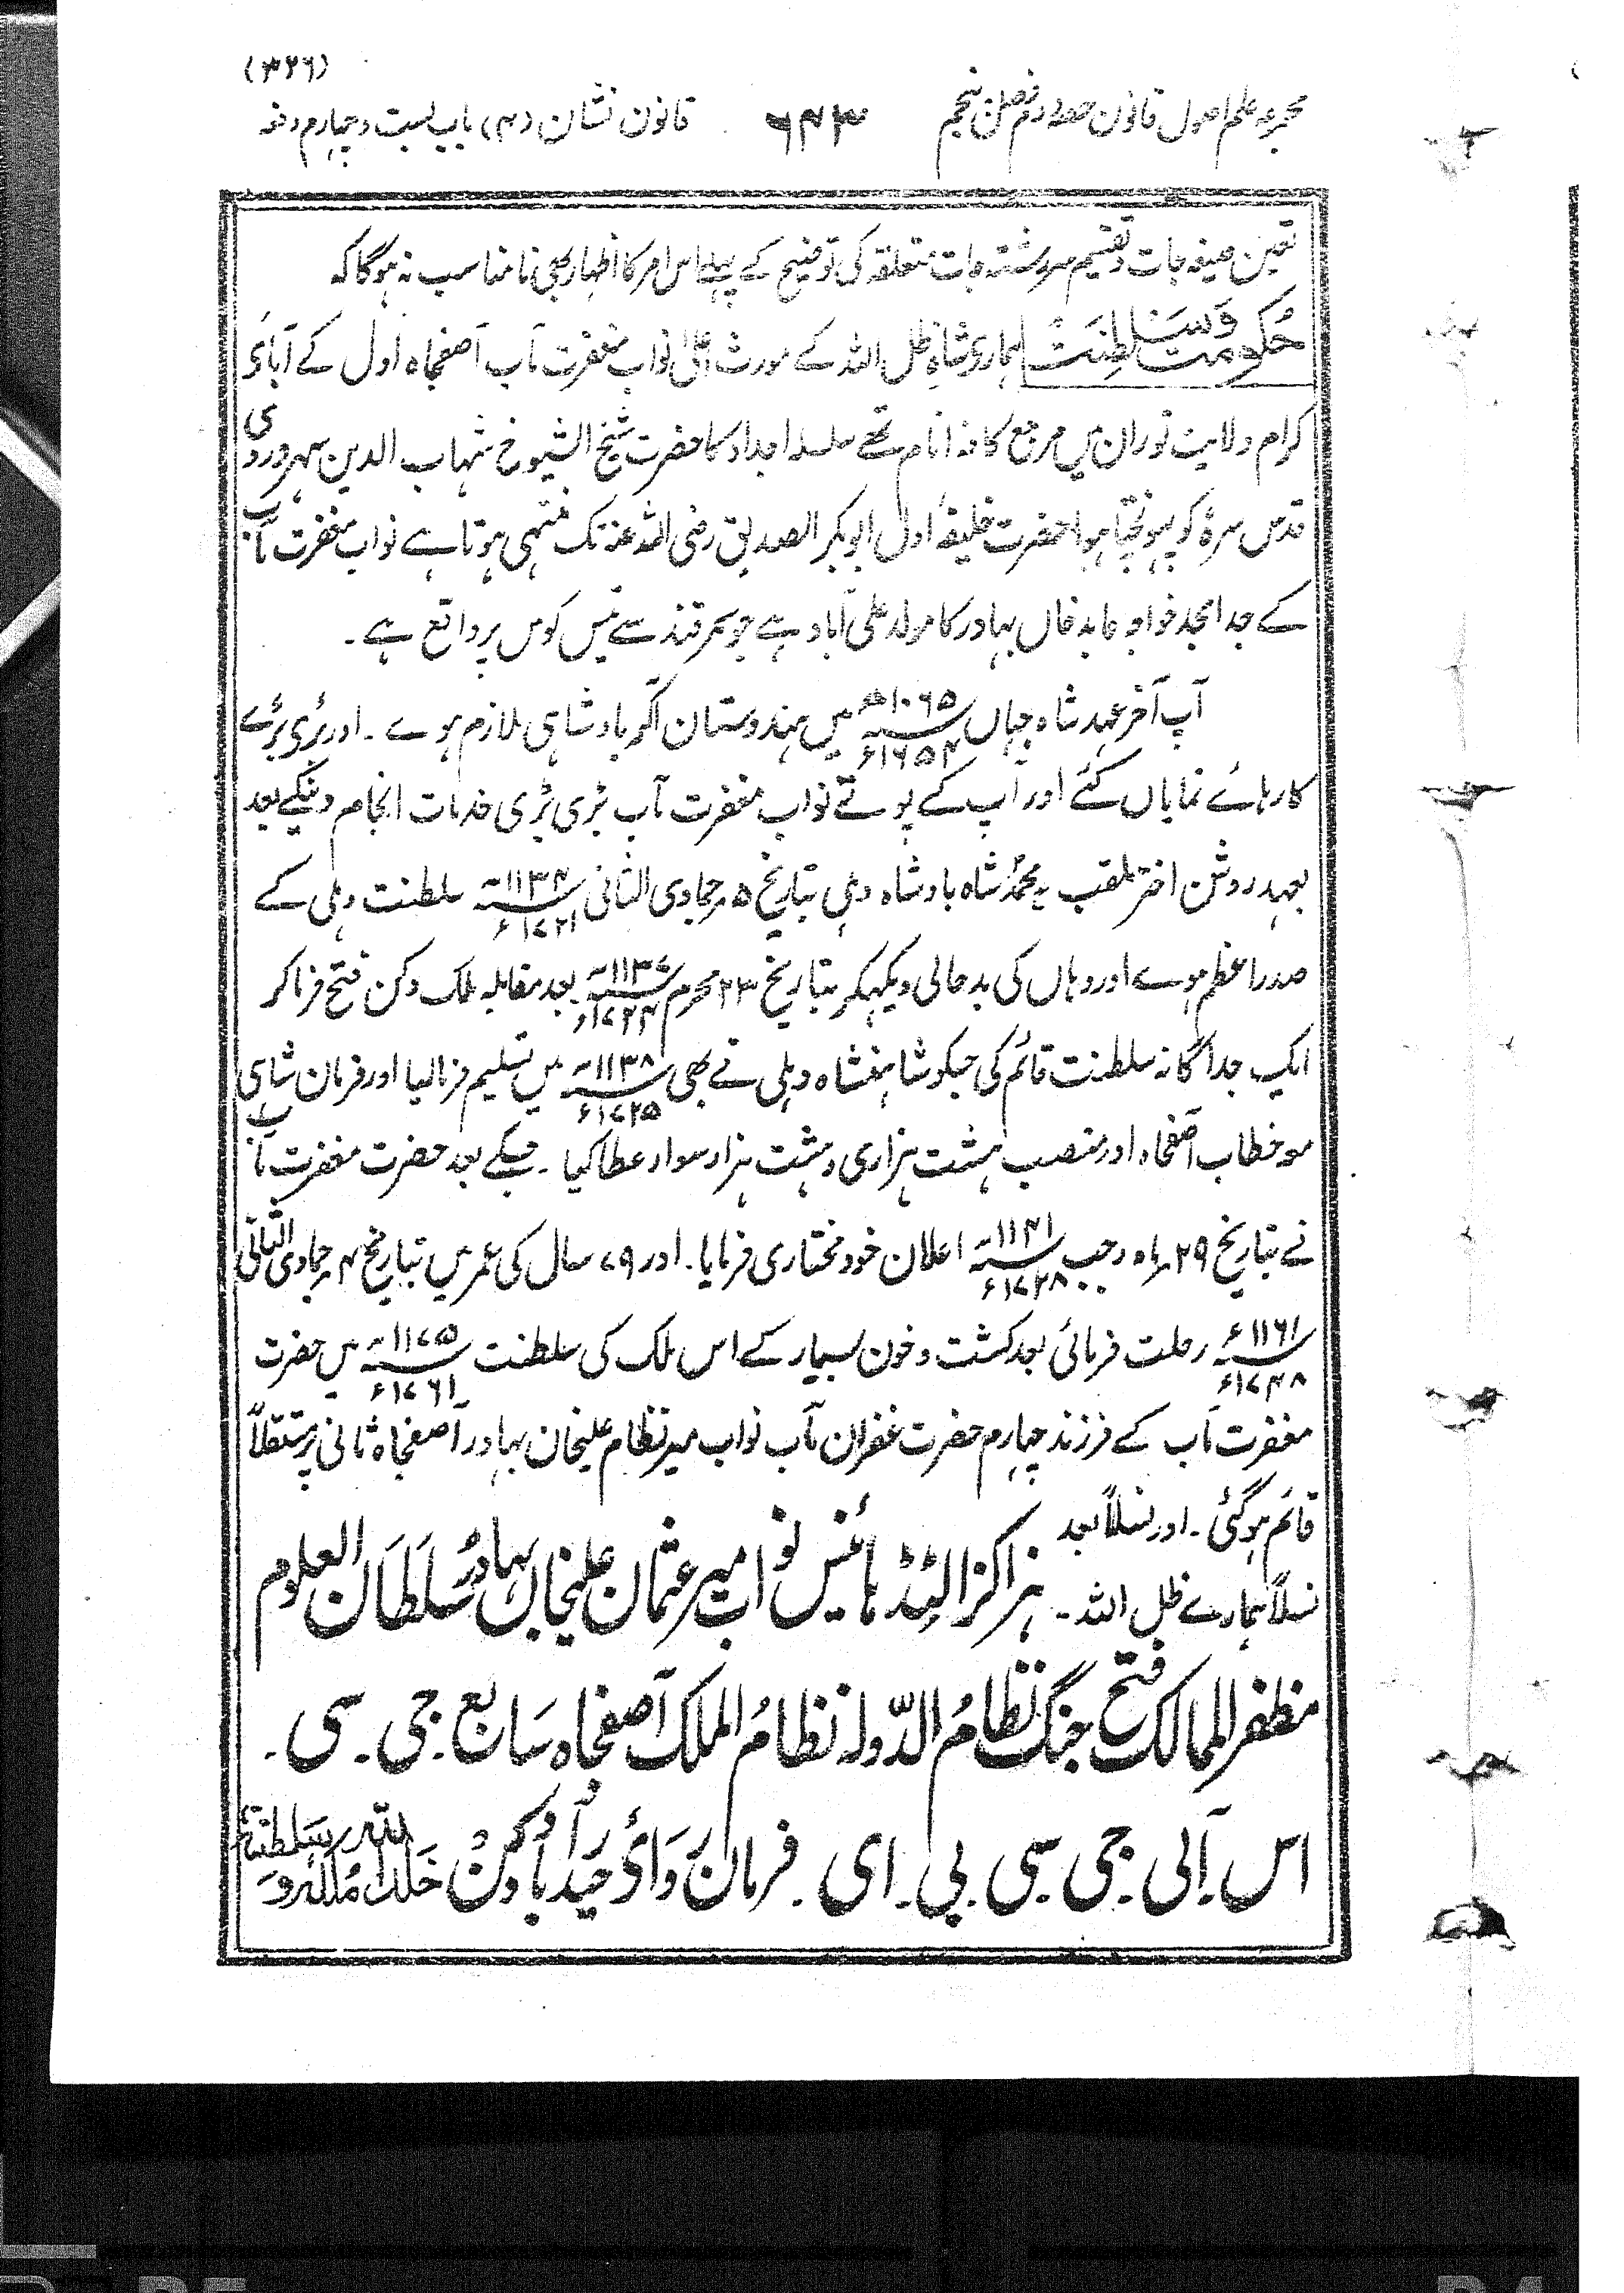 (۳۲٦)
مجموعہ علم اصول قانون حصہ دوم فصل پنجم ٦۴۳ قانون نشان (۳) باب بست و چہارم دفعہ
تعین صیغہ جات و تقسیم سررشتہ جات متعلقہ کی توضیح کے پہلے اس امر کا اظہار بھی نامناسب نہ ہوگا کہ
حُکومت وَسَلطِنَتْ ہماری شاہِ ظل اللہ کے مورث اعلیٰ نواب مغفرت مآب آصفجاہ اول کے آبائی
کرام ولایت توران میں مرجع کافۂ انام تھے سلسلہ اجداد کا حضرت شیخ الشیوخ شہاب الدین سہروردی
قدس سرہٗ کو پہونچتا ہوا حضرت خلیفۂ اول ابوبکر الصدیق رضی اللہ عنہ تک منتہی ہوتا ہے نواب مغفرت مآب
کے جد امجد خواجہ عابد خاں بہادر کا مولد علی آباد ہے جو سمرقند سے تیس کوس پر واقع ہے ۔
آپ آخر عہد شاہ جہاں ۱۰٦۵ھ ۱٦۵۴ء میں ہندوستان آکر بادشاہی ملازم ہوے ۔ اور بڑی بڑے
کارہائے نمایاں کئے اور آپ کے پوتے نواب مغفرت مآب بڑی بڑی خدمات انجام دینگے بعد
بعہد روشن اختر ملقب بہ محمد شاہ بادشاہ دہلی بتاریخ ۵ ؍ جمادی الثانی ۱۱۳۴ھ ۱۷۲۱ء سلطنت دہلی کے
صدر اعظم ہوے اور وہاں کی بدحالی دیکہکر بتاریخ ۲۳ محرم ۱۱۳۷ھ ۱۷۲۴ء بعد مقابلہ ملک دکن فتح فرما کر
ایک جداگانہ سلطنت قائم کی جسکو شاہنشاہ دہلی نے بھی ۱۱۳۸ھ ۱۷۲۵ء میں تسلیم فرمالیا اور فرمان شاہی
مو خطاب آصفجاہ اور منصب ہشت ہزاری و ہشت ہزار سوار عطا کیا ۔ جسکے بعد حضرت مغفرت مآب
نے بتاریخ ۲۹ ؍ ماہ رجب ۱۱۴۱ھ ۱۷۲۸ء اعلان خود مختاری فرمایا ۔ اور ۷۹ سال کی عمر میں بتاریخ ۴ ؍ جمادی الثانی
۱۱٦۱ء ۱۷۴۸ء رحلت فرمائی بعد کشت و خون بسیار کے اس ملک کی سلطنت ۱۱۷۵ھ ۱۷٦۱ء میں حضرت
مغفرت مآب کے فرزند چہارم حضرت غفران مآب نواب میر نظام علیخان بہادر آصفجاہ ثانی پر مستقلاً
قائم ہوگئی ۔ اور نسلاً بعد
نسلاً ہمارے ظل اللہ ۔ ہزاکزالٹڈ ہائنس نواب میر عثمان علیخان بہادر سُلطَان العلوم
مظفر الممالک فتح جنگ نظامُ الدّولہ نظامُ الملک آصفجاہ سَابع ۔ جی ۔ سی ۔
اس ۔ آئی ۔ جی ۔ سی ۔ بی ۔ ای ۔ فرمان رَوَائ حیدرآباد دکن خَلَدَ اللہُ مُلکَہُ وَسَلطَنَتَہُ